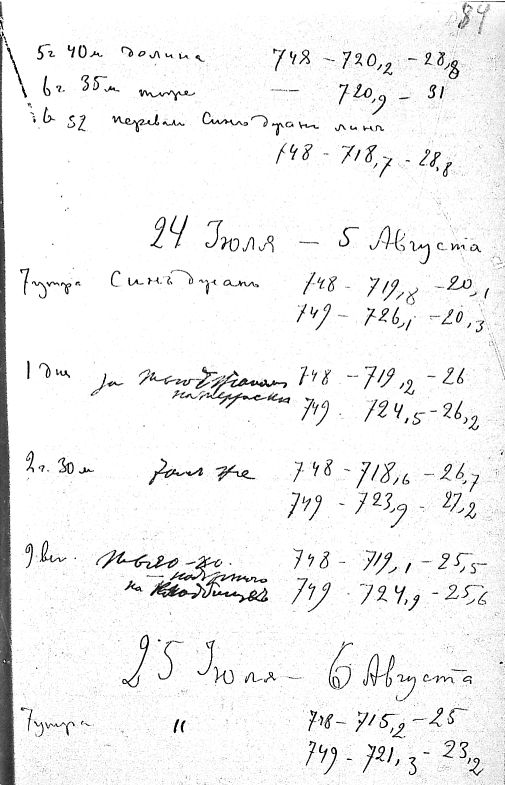 84
5 г 40 м долина 748 - 720,2 - 28,8
6 г. 35 м тоже — 720,9 - 31
6 52 перевал Синъдуань линъ
748 - 718,7 - 28,8
24 Июля - 5 Августа
7 утра Синъдуань 748 - 719,8 - 20,1
749 - 726,1 - 20,3
1 дня за 748 - 719,2 - 26
на террасе 749 - 724,5 - 26,2
2 г. 30 м там же 748 - 718,6 - 26,7
749 - 723,9 - 27,2
9 веч. 748 - 719,1 - 25,5
на кладбище 749 - 724,9 - 25,6
25 Июля - 6 Августа
7 утра " 748 - 715,2 - 25
749 - 721,3 - 23,2